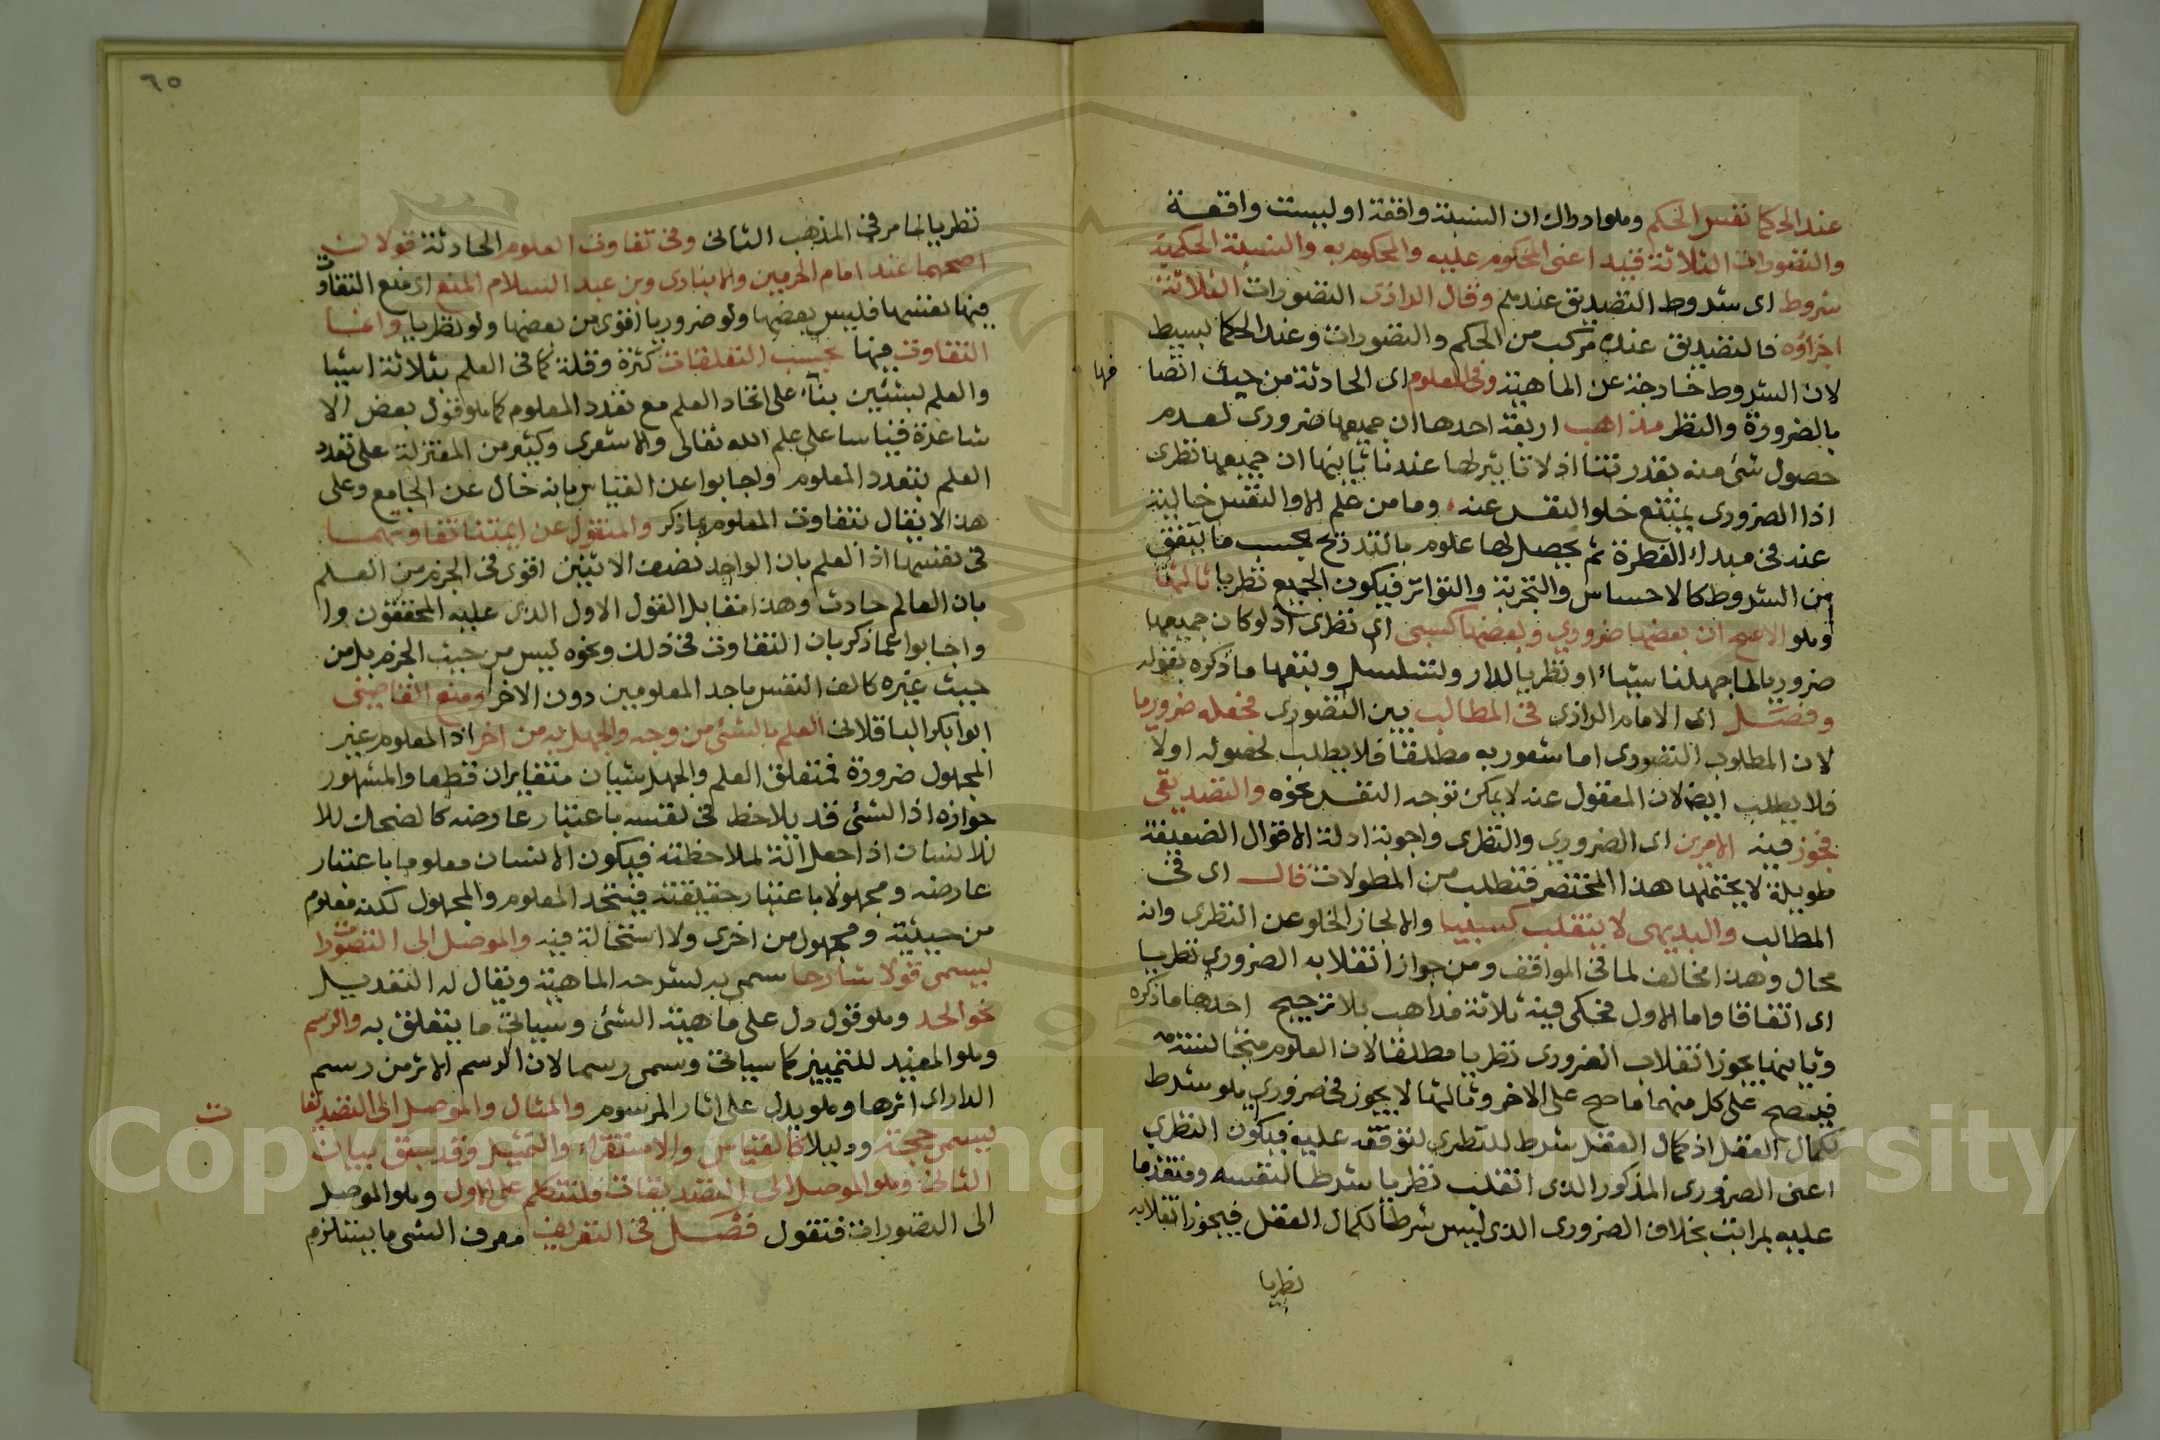 عند الحكما نفس الحكم وهو ادراك ان النسبة واقعة او ليست واقعة
والتصورات الثلاثة قيد اعنى المحكوم عليه والمحكوم به والنسبة الحكمية
شروط اى شروط التصديق عندهم وقال الرازى التصورات الثلاثة
اجزاؤه فالتصديق عنده مركب من الحكم والتصورات وعند الحكما بسيط
لان الشروط خارجة عن الماهية وفى العلوم اى الحادثة من حيث اتصا
فها
بالضرورة والنظر مذاهب اربعة احدها ان جميعها ضرورى لعدم
حصول شئ منه بقدرتنا اذ لا تاثير لها عندنا ثانيها ان جميعها نظرى
اذا الضرورى يمتنع خلو النفس عنه وما من علم الا والنفس خالية
عنه فى مبدا الفطرة ثم يحصل لها علوم بالتدريج بحسب ما يتفق
من الشروط كالاحساس والتجربة والتواتر فيكون الجميع نظريا ثالثها
وهو الاصح ان بعضها ضرورى وبعضها كسبى اى نظرى اذ لو كان جميعها
ضروريا لما جهلنا شيئا او نظريا لدار وتسلسل ورابعها ما ذكره بقوله
وفصل اى الامام الرازى فى المطالب بين التصورى فجعله ضروريا
لان المطلوب التصورى اما شعور به مطلقا فلا يطلب لحصوله اولا
فلا يطلب ايضا لان المغفول عنه لا يمكن توجه النفس نحوه والتصديقى
فجوز فيه الامرين اى الضرورى والنظرى واجوبة ادلة الاقوال الضعيفة
طويلة لا يحتملها هذا المختصر فتطلب من المطولات قال اى فى
المطالب والبديهى لا ينقلب كسبيا والا لجاز الخلو عن النظرى وانه
محال وهذا مخالف لما فى المواقف ومن جواز انقلابه الضرورى نظريا
اى اتفاقا واما الاول فحكى فيه ثلاثة مذاهب بلا ترجيح احدها ما ذكره
وثانيها يجوز انقلاب الضرورى نظريا مطلقا لان العلوم متجانسة
فيصح على كل منهما ما صح على الاخر وثالثها لا يجوز فى ضرورى هو شرط
لكمال العقل اذ كمال العقل شرط للنظرى لتوقفه عليه فيكون النظرى
اعنى الضرورى المذكور الذى انقلب نظريا شرطا لنفسه ومتقدما
عليه بمراتب بخلاف الضرورى الذى ليس شرطا لكمال العقل فيجوز انقلابه
نظريا
٦٥
نظريا لما مر فى المذهب الثانى وفى تفاوت العلوم الحادثة قولان
اصحهما عند امام الحرمين والابيارى وبن عبد السلام المنع اى منع التفاوت
فيها نفسها فليس بعضها ولو ضروريا اقوى من بعضها ولو نظريا وانما
التفاوت فيها بحسب التعلقات كثرة وقلة كما فى العلم بثلاثة اشيا
والعلم بشيئين بناء على اتحاد العلم مع تعدد المعلوم كما هو قول بعض الا
شاعرة قياسا على علم الله تعالى والاشعرى وكثير من المعتزلة على تعدد
العلم بتعدد المعلوم واجابوا عن القياس بانه خال عن الجامع وعلى
هذا لا يقال بتفاوت العلوم بما ذكر والمنقول عن ايمتنا تفاوتهما
فى نفسها اذ العلم بان الواحد نصف الاثنين اقوى فى الجزم من العلم
بان العالم حادث وهذا مقابل القول الاول الذى عليه المحققون وا
واجابوا عما ذكر بان التفاوت فى ذلك ونحوه ليس من حيث الجزم بل من
حيث غيره كالف النفس باحد المعلومين دون الاخر ومنع القاضى
ابوا بكر الباقلانى العلم بالشئ من وجه والجهل به من اخر اذ المعلوم غير
المجهول ضرورة فمتعلق العلم والجهل شيان متغايران قطعا والمشهور
جوازه اذ الشئ قد يلاحظ فى نفسه باعتبار عارضه كالضحاك للا
للانسان اذا جعل الة لملاحظته فيكون الانسان معلوما باعتبار
عارضه ومجهولا باعتبار حقيقته فيتحد المعلوم والمجهول لكنه معلوم
من حيثية ومجهول من اخرى ولا استحالة فيه والموصل الى التصورات
يسمى قولا شارحا سمى به لشرحه الماهية ويقال له التعريف
نحو الحد وهو قول دل على ماهية الشئ وسياتى ما يتعلق به والرسم
وهو المفيد للتمييز كما سياتى وسمى رسما لان الرسم الاثر من رسم
الدار اى اثرها وهو يدل على اثار المرسوم والمثال والموصل الى التصديقا
ت
يسمى حجة ودليلا كالقياس والاستقراء والتمثيل وقد سبق بيان
الثانى وهو الموصل الى التصديقات فلنتكلم على الاول وهو الموصل
الى التصورات فنقول فصل فى التعريف معرف الشى ما يستلزم
Copyright © King Saud University